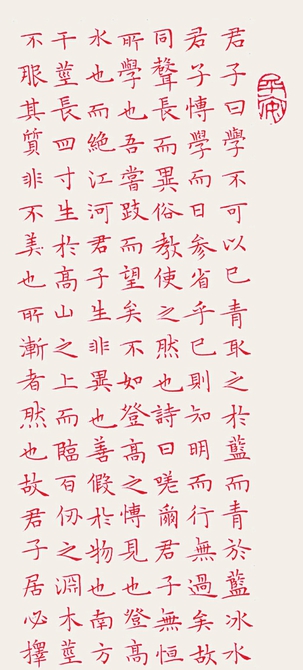 君子曰學不可以已青取之於藍而青於藍冰水
君子慱學而日参省乎已則知明而行無過矣故
同聱長而異俗教使之然也詩曰嗟爾君子無恒
所學也吾嘗跂而望矣不如登高之慱見也登高
水也而絕江河君子生非異也善假於物也南方
干莖長四寸生於高山之上而臨百仞之淵木莖
不服其質非不美也所漸者然也故君子居必擇